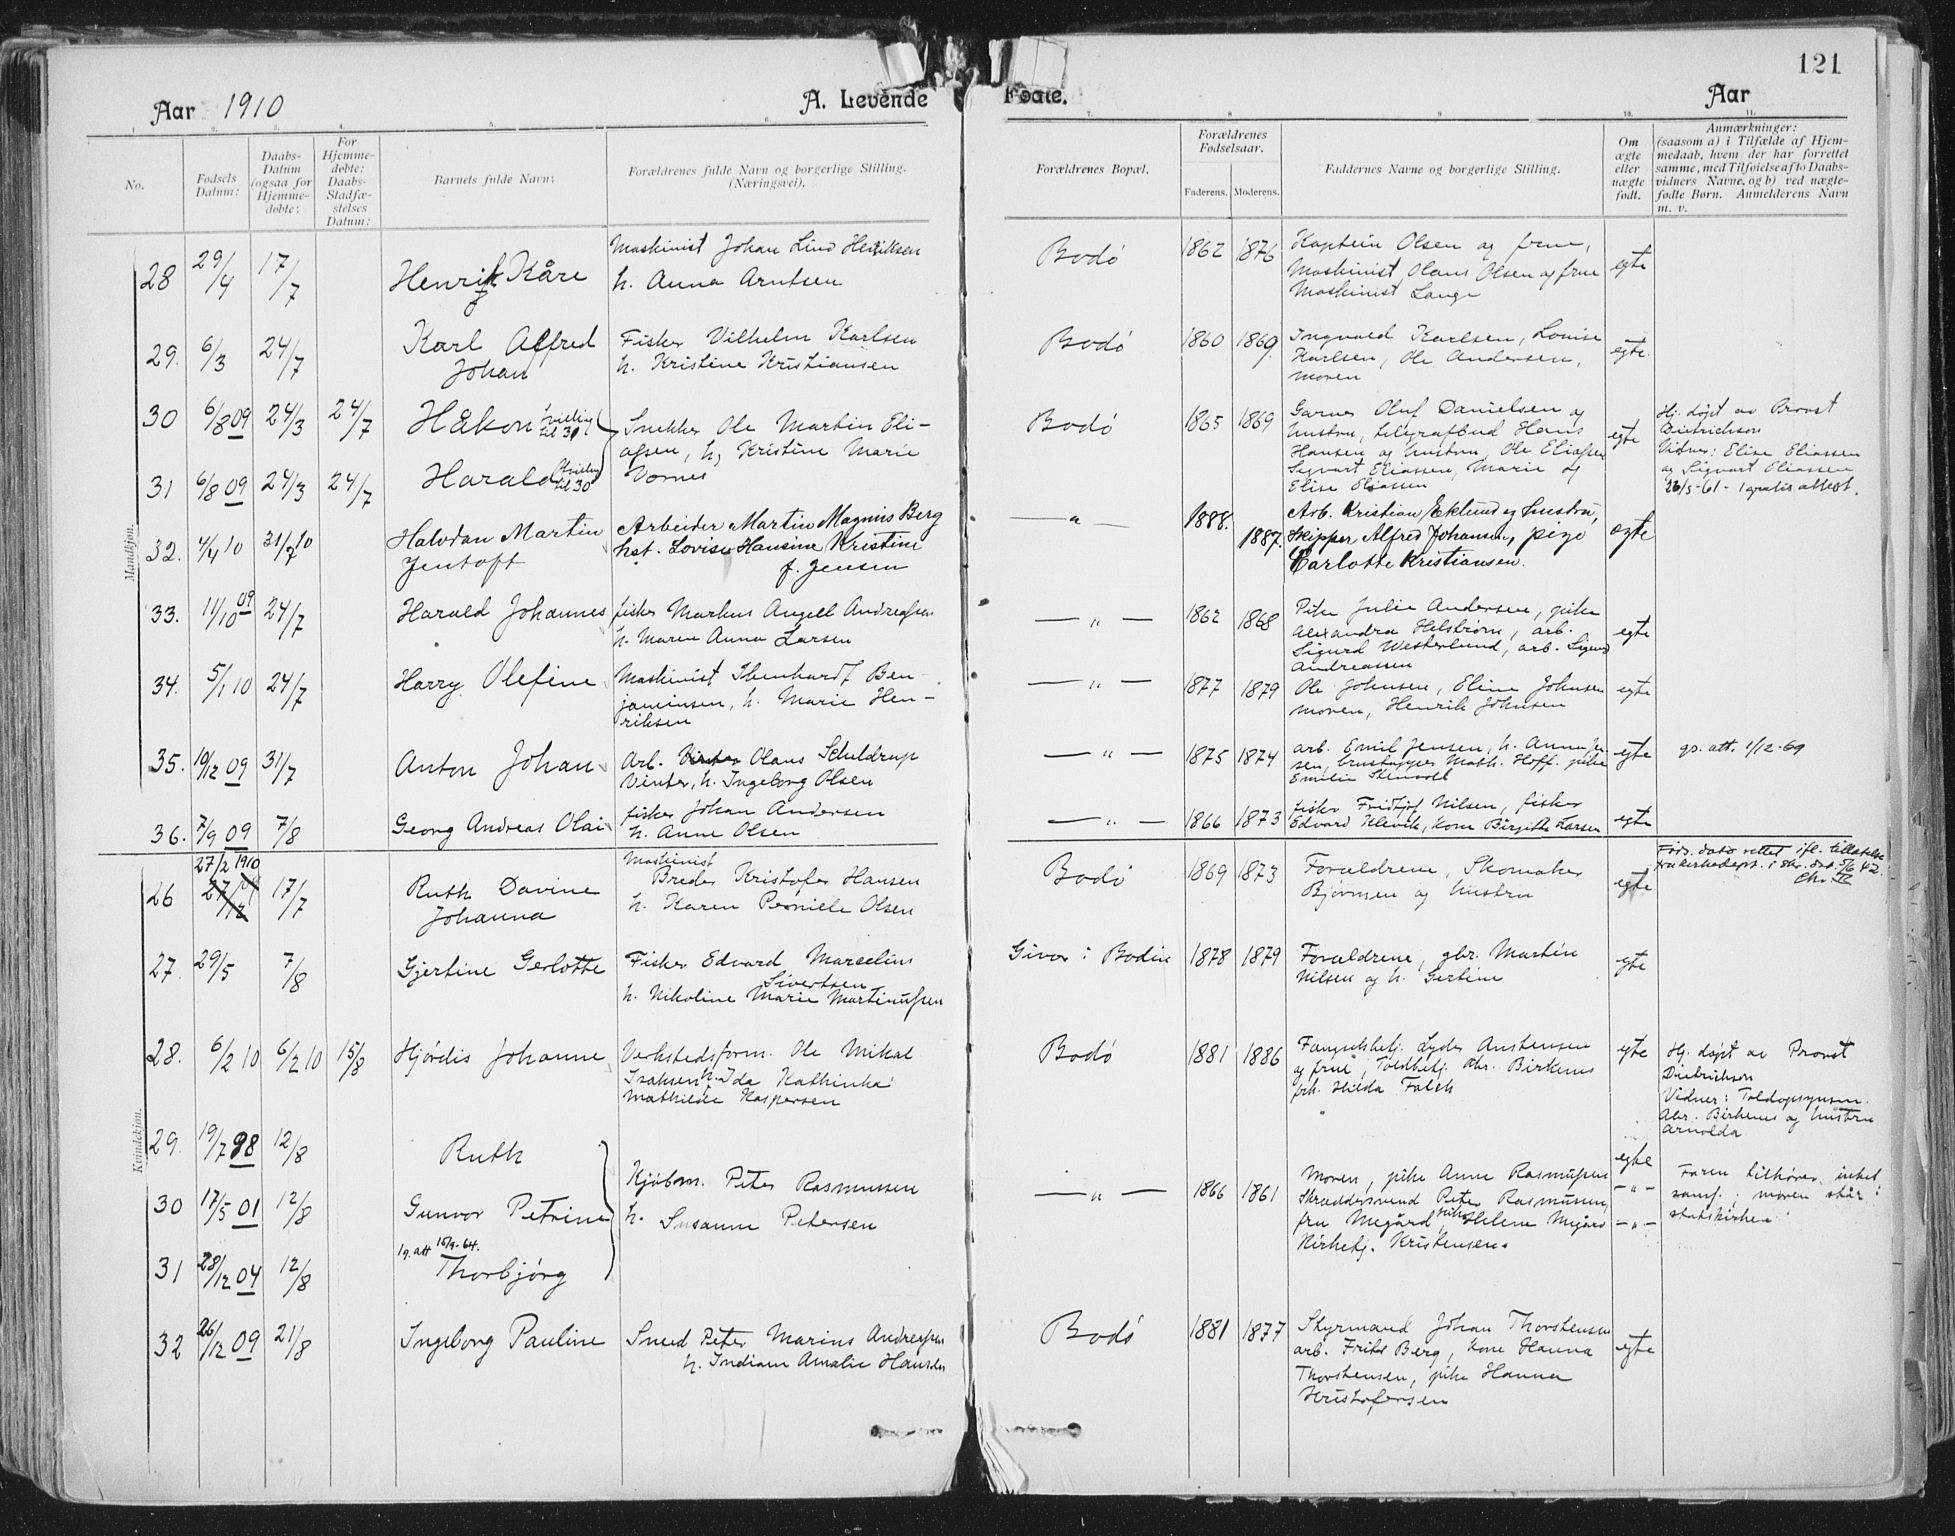 121
Aar 1910 A. Levende Fødte. Aar
1. 2. 3. 4. 5. 6. 7. 8 9 10. 11.
No.
Fødsels Datum:
Daabs-Datum (ogsaa for Hjemme-døbte:
For Hjemme-døbte: Daabs-Stadfæ-stelses Datum:
Barnets fulde Navn:
Forældrenes fulde Navn og borgerlige Stilling. (Næringsvei).
Forældrenes Bopæl.
Forældrenes Fødselsaar.
Faderens. Moderens.
Faddernes Navne og borgerlige Stilling.
Om ægte eller nægte født.
Anmærkninger: (saasom a) i Tilfælde af Hjem-medaab, hvem der har forrettet samme, med Tilføielse af to Daabs-vidners Navne, og b) ved nægte-fødte Børn. Anmelderens Navn m. v.
Mandkjøn.
28 29/4 17/7 Henrik Kåre
Maskinist Johan Lind Henriksen
h. Anna Arntsen
Bodø 1862 1876
Kaptein Olsen og frue,
Maskinist Olaus Olsen og frue
Maskinist Lange
egte
29. 6/3 24/7 Karl Alfred
Johan
Fisker Vilhelm Karlsen
h. Kristine Kristiansen
Bodø 1860 1869
Ingvald Karlsen, Lovise
Karlsen, Ole Andersen,
moren
egte.
30 6/8 09 24/3 24/7 Håkon tvilling til 31
Snekker Ole Martin Eli-
assen, h. Kristine Marie
Vornes
Bodø 1865 1869
Garver Oluf Danielsen og
hustru, telegrafbud Hans
Hansen og hustru, Ole Eliassen
Sigvart Eliassen, Marie og
Elise Eliassen
egte
Hj. døpt av Provst
Dietrichson
Vidner: Elise Eliassen
og Sigvart Eliassen
26/5-61 - 1 gratis attest.
31 6/8 09 24/3 24/7 Harald tvilling til 30
32. 4/4 10 31/7 10 Halvdan Martin
Jentoft
Arbeider Martin Magnus Berg
hst. Lovise Hansine Kristine
f. Jensen
— " — 1888. 1887.
Arb. Kristian Eklund og hustru,
Skipper Alfred Johansen, pige
Carlotte Kristiansen.
egte
33. 11/10 09 24/7 Harald Johannes
fisker Markus Angell Andreassen
h. Maren Anna Larsen
— " — 1862 1868
Pike Julie Andersen, pike
Alexandra Helstrøm, arb.
Sigurd Westerlund, arb. Sigurd
Andreassen
egte
34. 5/1 10 24/7 Harry Olefine
Maskinist Ibenhardt Ben-
jaminsen, h. Marie Hen-
riksen
— " — 1877 1879
Ole Johnsen, Eline Johnsen
moren, Henrik Johnsen
egte
35. 19/12 09 31/7 Anton Johan
Arb. Olaus Schuldrup
Vinter, h. Ingeborg Olsen
— " — 1875 1874
arb. Emil Jensen, h. Anna Jen
sen, Math. Hoff. pike
Emilie
egte
gr. att. 1/12-69
36. 7/9 09 7/8 Georg Andreas Olai
fisker Johan Andersen
h. Anne Olsen
— " — 1866 1873
fisker Fridtjof Nilsen, fisker
Edvard Klevik, kone Birgithe Larsen
egte
Kvindekjøn.
27/2 1910
26 17/7 Ruth Davine
Johanna
Maskinist
Breder Kristofer Hansen
h. Karen Perniele Olsen
Bodø 1869 1873
Forældrene, Skomaker
Bjørnsen og hustru
egte
Føds. dato rettet ifl. tillatelse
fra kirkedept. i skr. dat. 5/6 42.
27. 29/5 7/8 Gjertine Gerlotte
Fisker Edvard Marcelius
Sivertsen
h. Nikoline Marie Martinussen
Givær i Bodin 1878 1879
Forældrene, gbr. Martin
Nilsen og h. Gertine
egte
28. 6/2 10 6/2 10 15/8 Hjørdis Johanne
Verkstedsform. Ole Mikal
Isaksen h. Ida Kathinka
Mathilde Kaspersen
Bodø 1881 1886
Fængselsbetj. Lyder Anstensen
og frue, Toldbetj. Abr. Birkenes
frk. Hilda Falck
egte
Hj. døpt av Provst
Dietrichson
Vidner: Toldopsynsm.
Abr. Birkenes og hustru
Arnolda
29. 19/7 98 12/8 Ruth
egte
30 17/5 01 12/8 Gunvor Petrine
Kjøbm. Peter Rasmussen
h. Susanne Petersen
— " — 1866 1861
Moren, pike Anne Rasmussen
Skræddersvend Peter Rasmussen,
fru Megård, pike Helene Megård
Kirketj. Kristensen.
— " —
— " —
Faren tilhører intet
samf.; moren står i
statskirken
1 g. att 15/9-64.
31 28/12 04 12/8 Thorbjørg
32 26/12 09 21/8 Ingeborg Pauline
Smed Peter Marius Andreassen
h. Indiane Amalie Hansen
Bodø 1881 1877
Styrmand Johan Thorstensen
arb. Frits Berg, kone Hanna
Thorstensen, pike Hanna
Kristofersen
egte